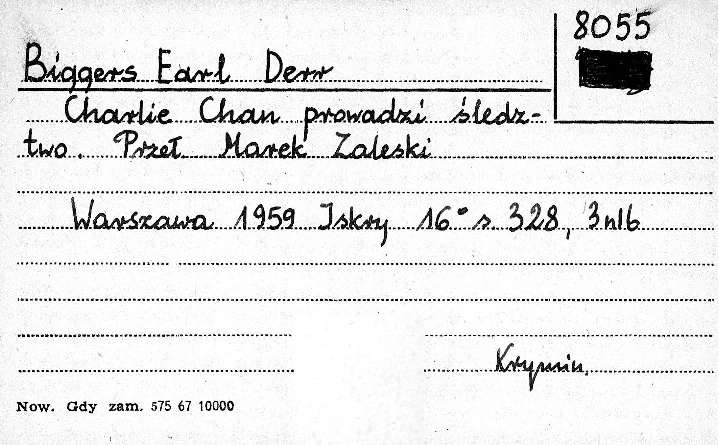 8055
Biggers Earl Derr
Charlie Chan prowadzi śledz-
two. Przeł. Marek Zaleski
Warszawa 1959 Iskry 16° s. 328, 3nlb
Krymin.
Now. Gdy zam. 575 67 10000